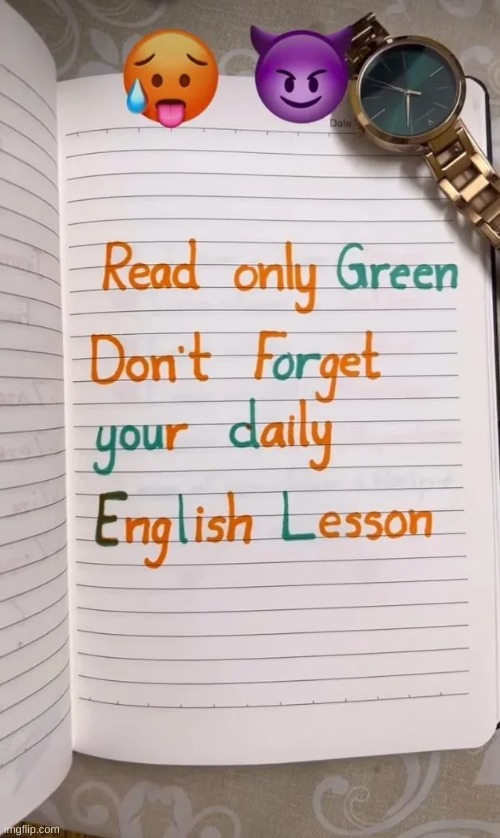 Date
Read only Green
Don't Forget
your daily
English Lesson
imgflip.com